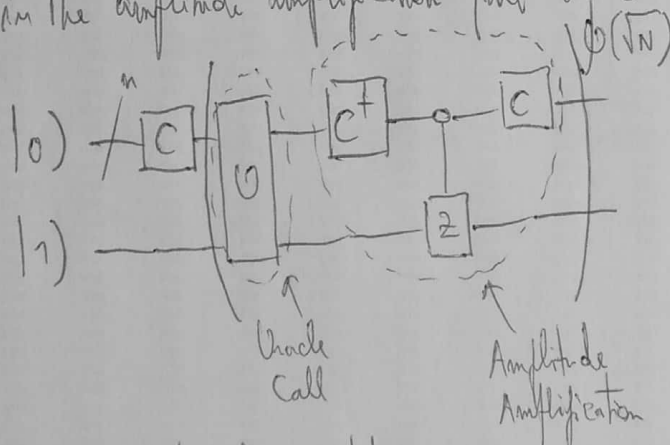 in the amplitude amplification
O(√N)
n
|0⟩ C O C† C
|1⟩ Z
Oracle Call
Amplitude Amplification